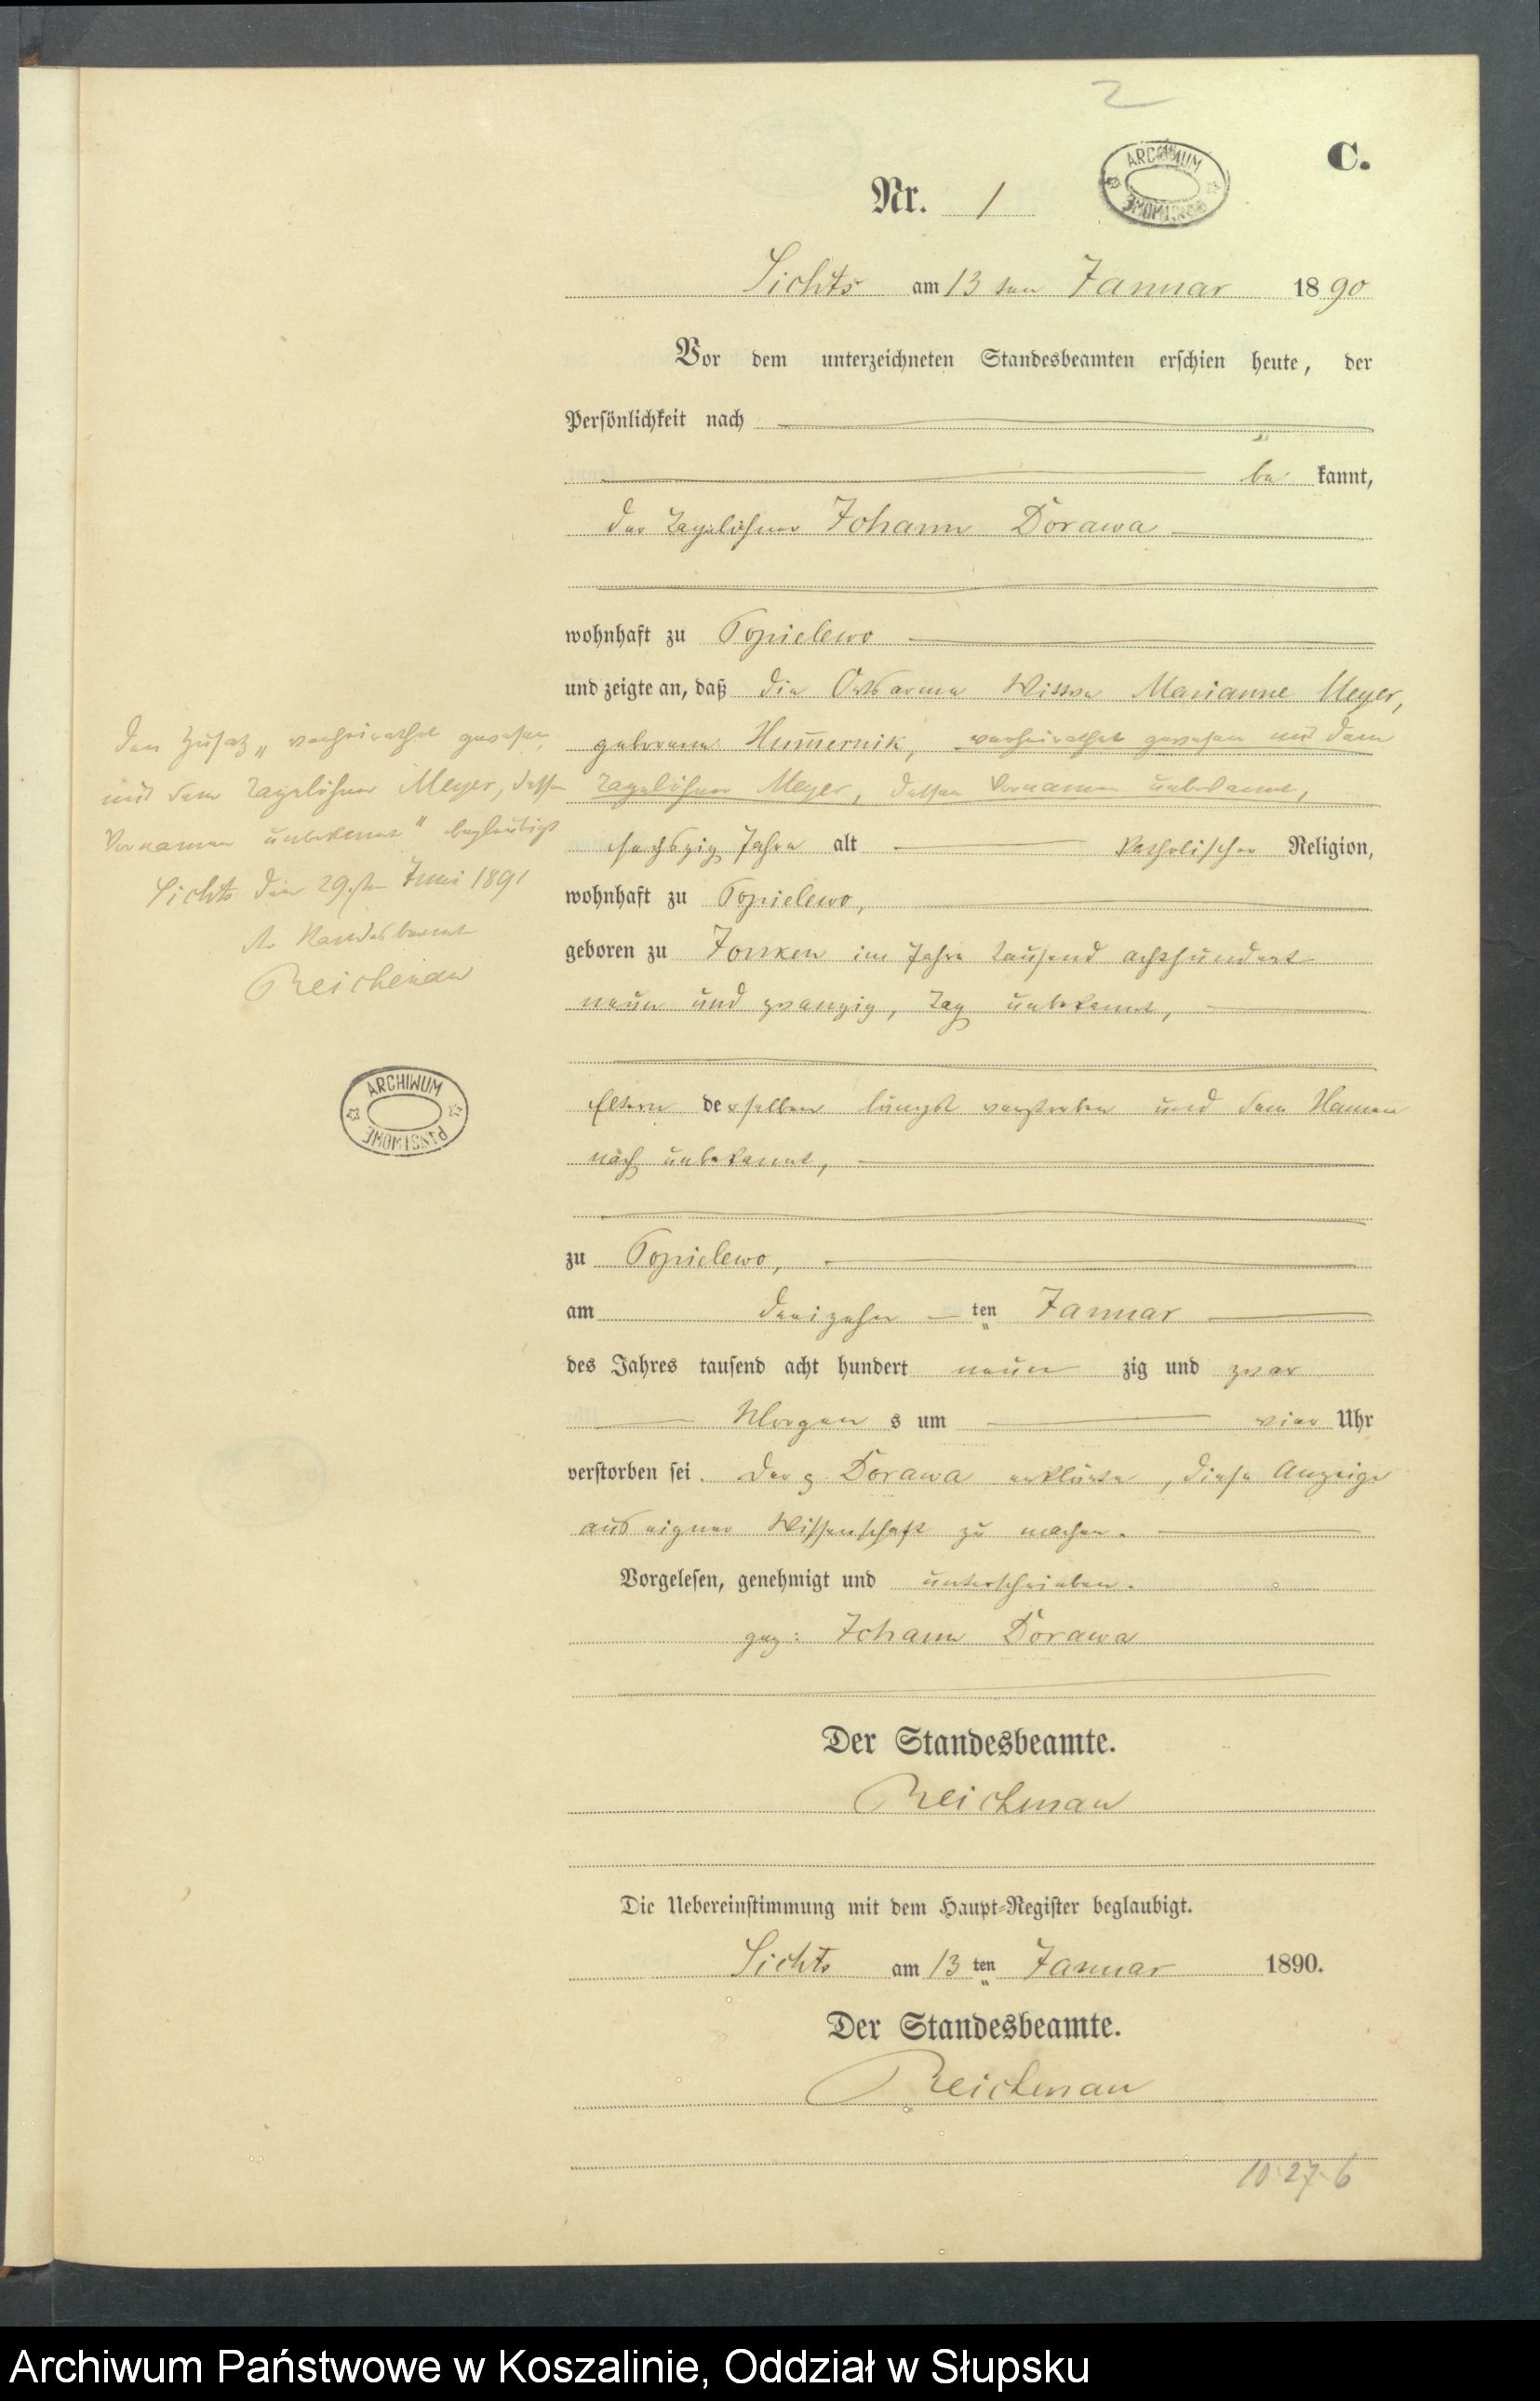 2
C.
ARCHIWUM PAŃSTWOWE
Nr. 1
Lichts am 13 ten Januar 1890
Vor dem unterzeichneten Standesbeamten erschien heute, der
Persönlichkeit nach
be kannt,
der Tagelöhner Johann Dorawa
wohnhaft zu Popielewo
und zeigte an, daß die Ortsarme Wittwe Marianne Meyer,
geborene Hum̅ernik, verheirathet gewesen mit dem
Tagelöhner Meyer, dessen Vornamen unbekannt,
sechszig Jahre alt katholischer Religion,
wohnhaft zu Popielewo,
geboren zu im Jahre tausend achthundert
neun und zwanzig, Tag unbekannt,
Eltern derselben längst verstorben und dem Namen
nach unbekannt,
zu Popielewo,
am dreizehn ten Januar
des Jahres tausend acht hundert neun zig und zwar
Morgen s um vier Uhr
verstorben sei. Der Dorawa erklärte, diese Anzeige
aus eigner Wissenschaft zu machen.
Vorgelesen, genehmigt und unterschrieben.
gez: Johann Dorawa
Der Standesbeamte.
Reichenau
Die Uebereinstimmung mit dem Haupt-Register beglaubigt.
Lichts am 13 ten Januar 1890.
Der Standesbeamte.
Reichenau
10.27.6
Den Zusatz „verheirathet gewesen
mit dem Tagelöhner Meyer, dessen
Vornamen unbekannt“ beglaubigt
Lichts den 29. ten Juni 1891
Der Standesbeamte
Reichenau
ARCHIWUM PAŃSTWOWE
Archiwum Państwowe w Koszalinie, Oddział w Słupsku